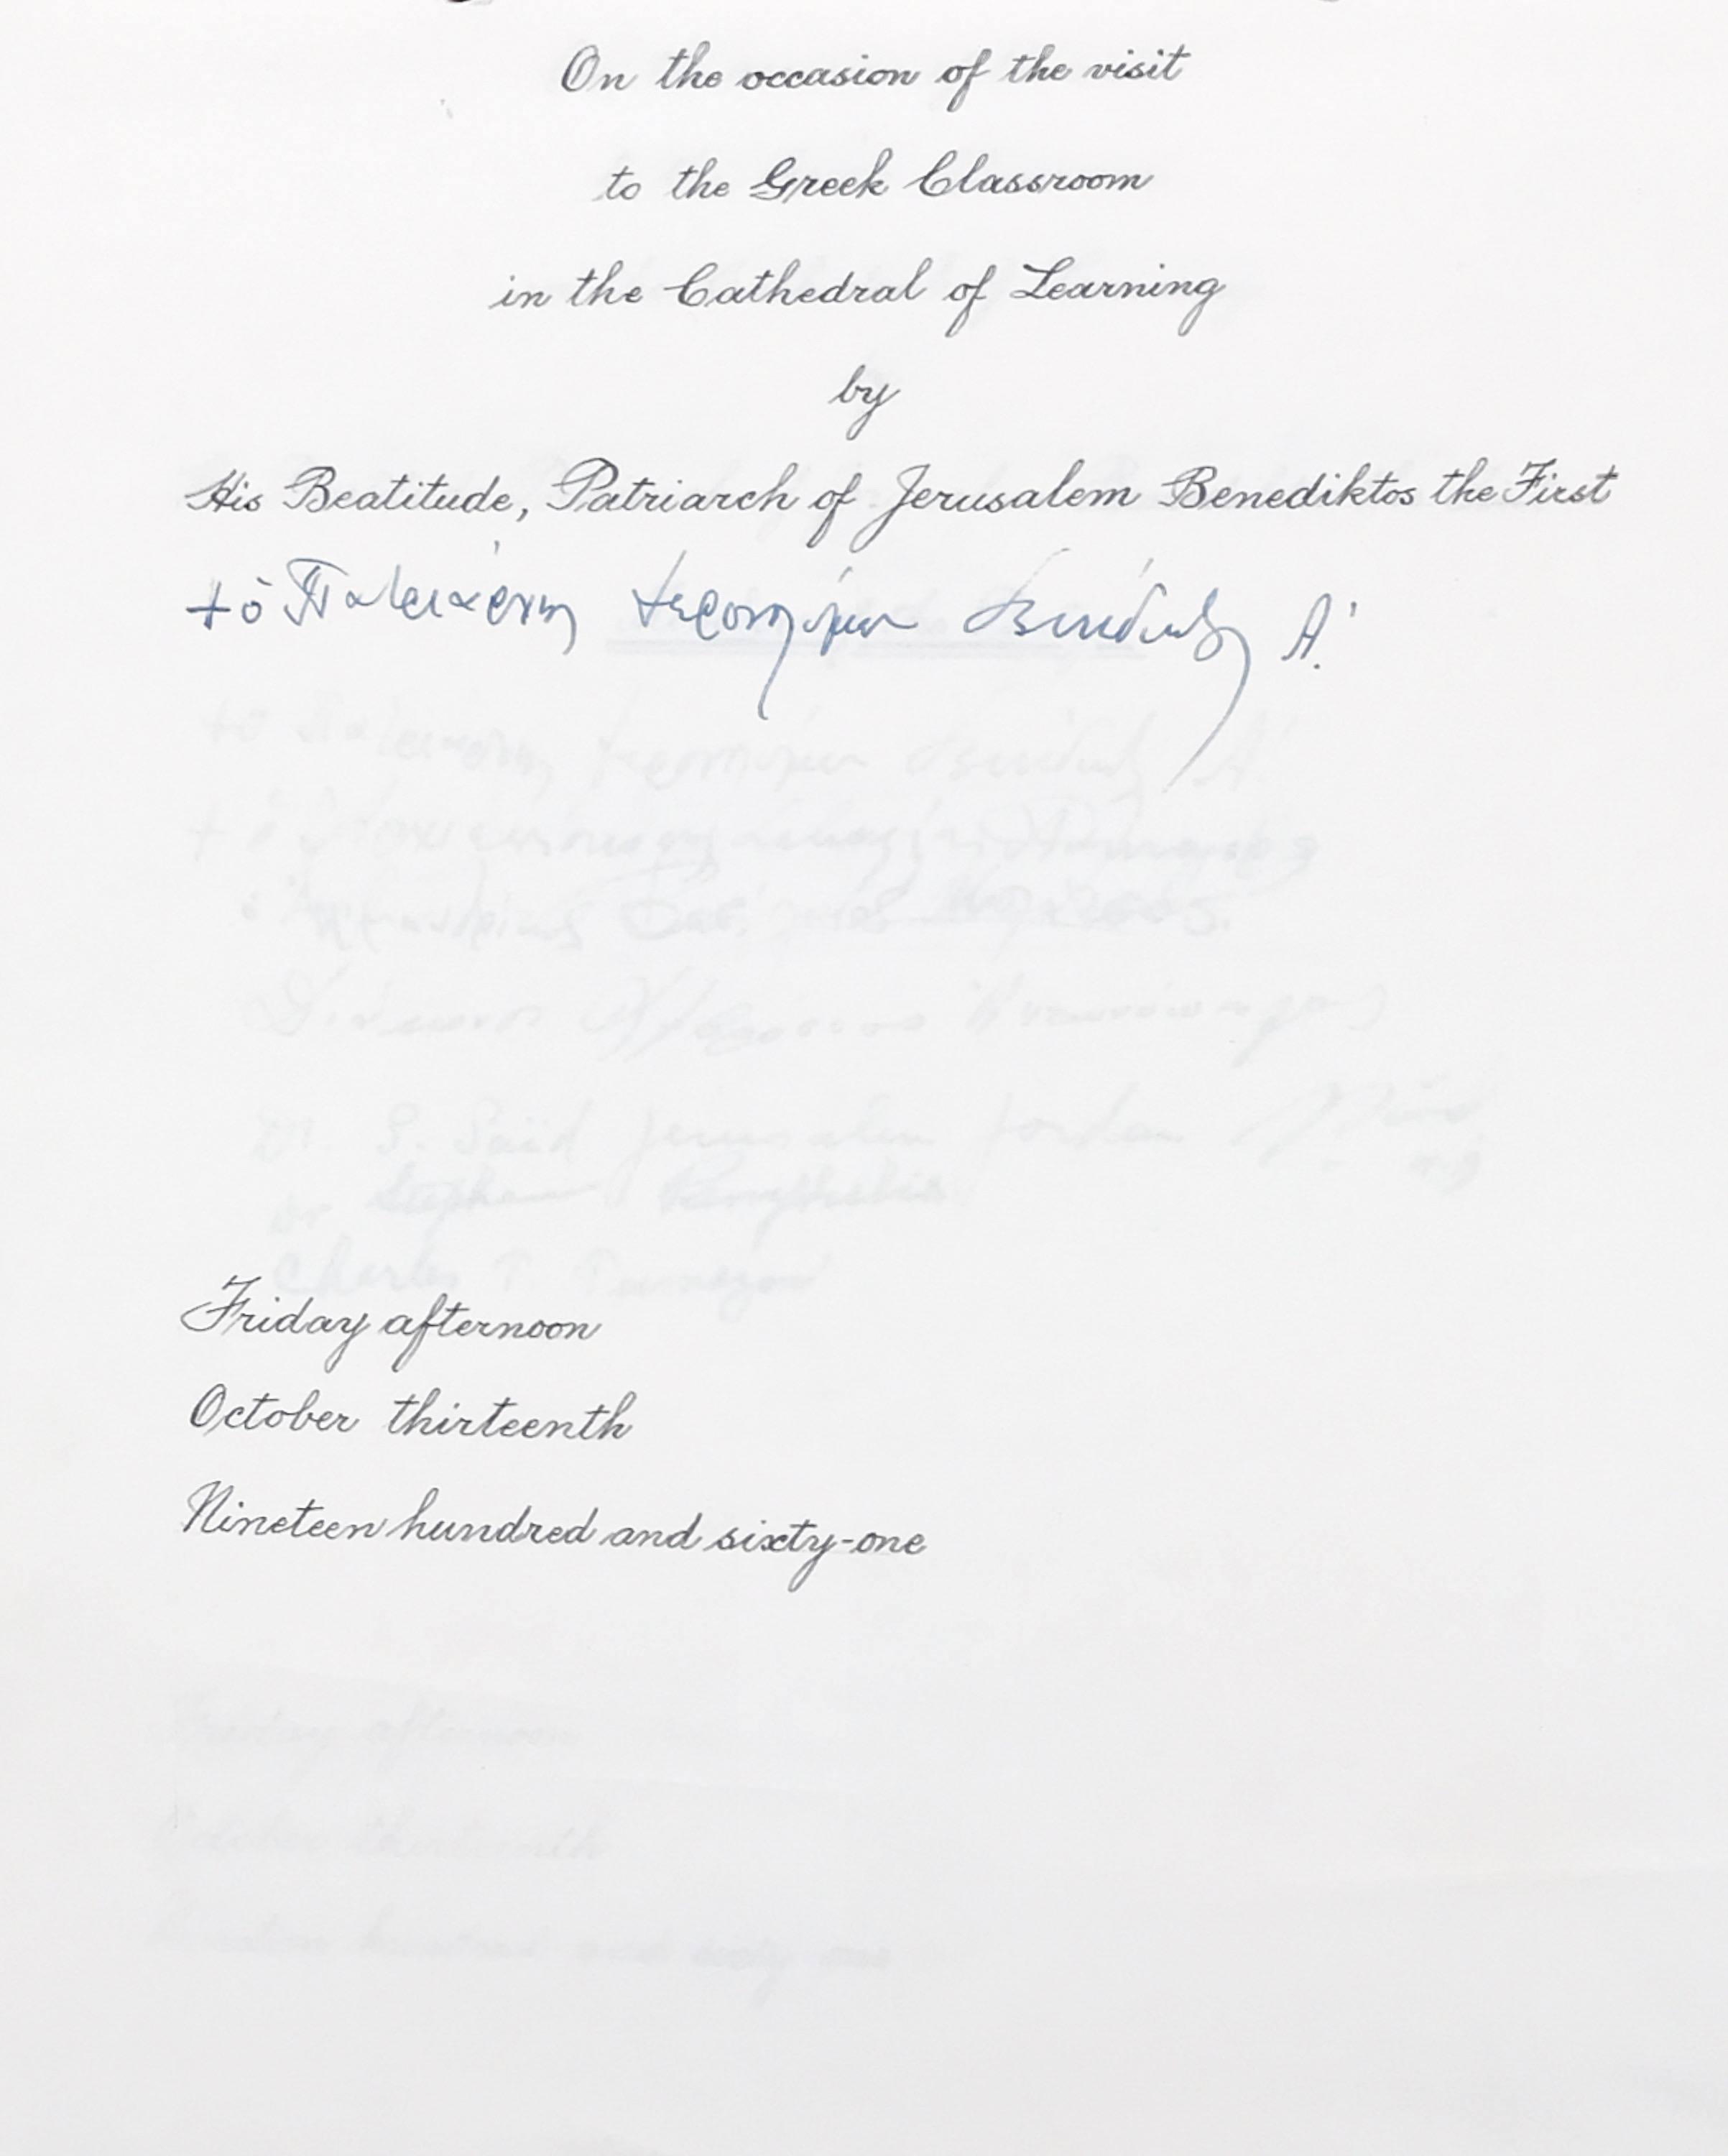 On the occasion of the visit
to the Greek Classroom
in the Cathedral of Learning
by
His Beatitude, Patriarch of Jerusalem Benediktos the First
+ ὁ Πατριάρχης Ἱεροσολύμων Βενέδικτος Α'.
Dr. S. Said Jerusalem Jordan
Dr Stephen
Charles T.
Friday afternoon
October thirteenth
Nineteen hundred and sixty-one